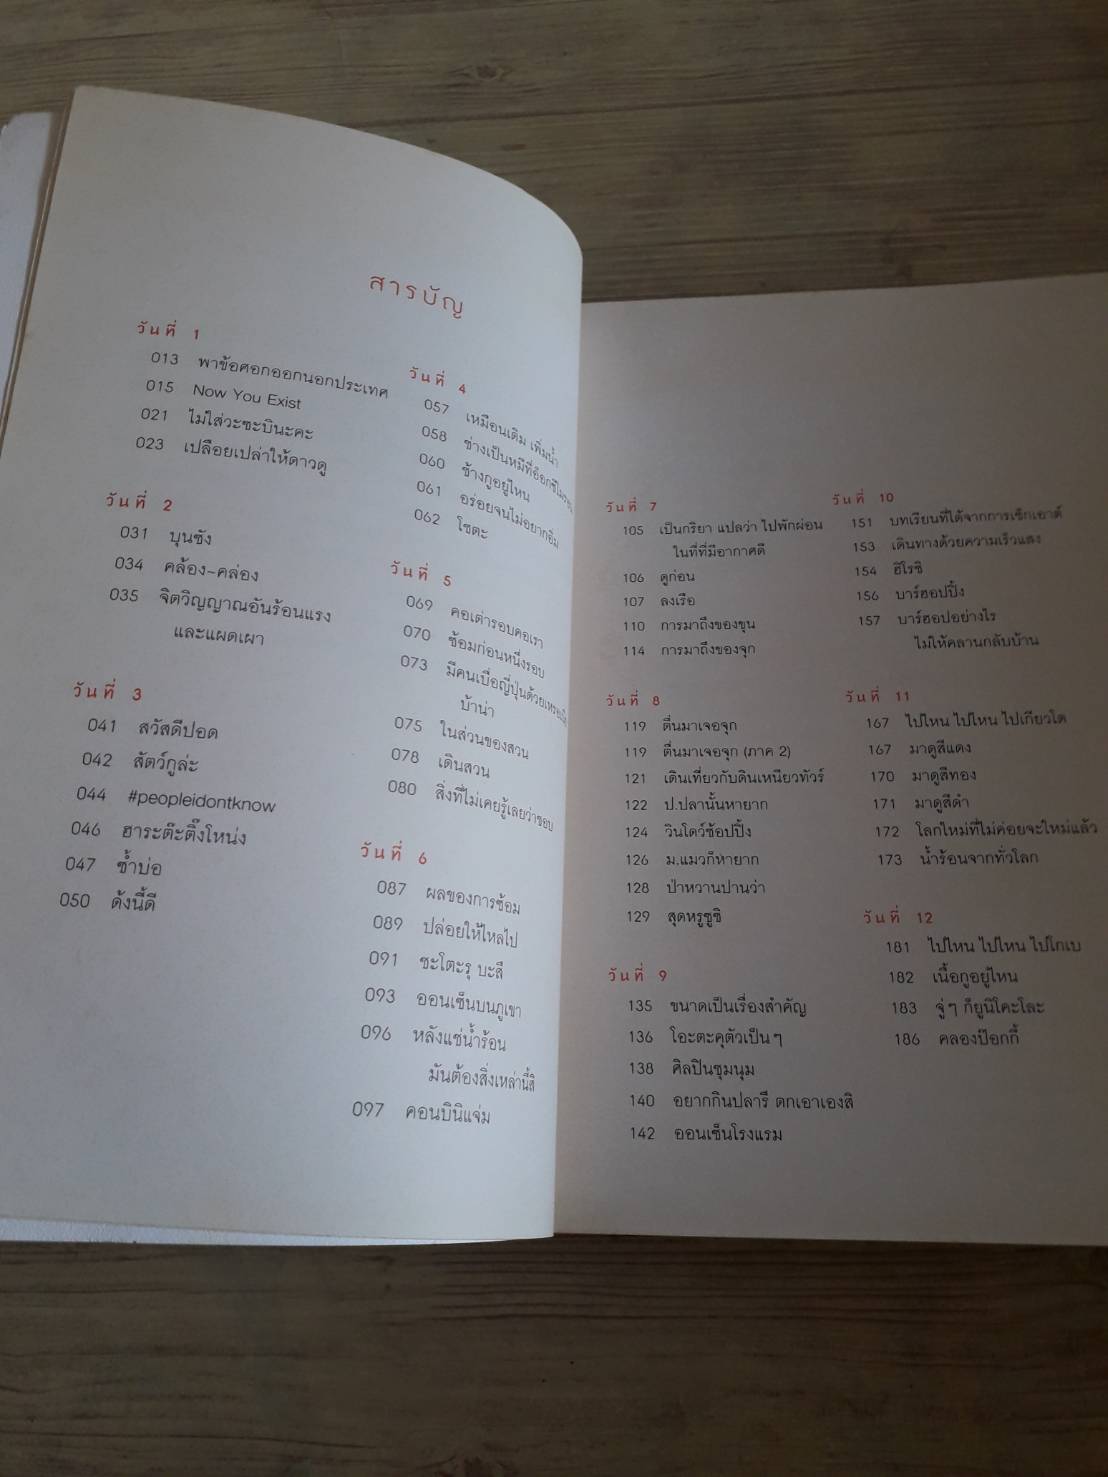 สารบัญ
วันที่ 1
013 พาข้อศอกออกนอกประเทศ
015 Now You Exist
021 ไม่ใส่วะซะบินะคะ
023 เปลือยเปล่าให้ดาวดู
วันที่ 2
031 บุนซัง
034 คล้อง-คล่อง
035 จิตวิญญาณอันร้อนแรง
และแผดเผา
วันที่ 3
041 สวัสดีปอด
042 สัตว์กูล่ะ
044 #peopleidontknow
046 ฮาระต๊ะติ๊งโหน่ง
047 ซ้ำบ่อ
050 ดังนี้ดี
วันที่ 4
057 เหมือนเดิม เพิ่มน้ำ
058 ช่างเป็นหมีที่
060 ช้างกูอยู่ไหน
061 อร่อยจนไม่อยากอิ่ม
062 โชตะ
วันที่ 5
069 คอเต่ารอบคอเรา
070 ซ้อมก่อนหนึ่งรอบ
073 มีคนเบื่อญี่ปุ่นด้วย
บ้าน่า
075 ในส่วนของสวน
078 เดินสวน
080 สิ่งที่ไม่เคยรู้เลยว่าชอบ
วันที่ 6
087 ผลของการซ้อม
089 ปล่อยให้ไหลไป
091 ซะโตะรุ บะสึ
093 ออนเซ็นบนภูเขา
096 หลังแช่น้ำร้อน
มันต้องสิ่งเหล่านี้สิ
097 คอนบินิแจ่ม
วันที่ 7
105 เป็นกริยา แปลว่า ไปพักผ่อน
ในที่ที่มีอากาศดี
106 ดูก่อน
107 ลงเรือ
110 การมาถึงของขุน
114 การมาถึงของจุก
วันที่ 8
119 ตื่นมาเจอจุก
119 ตื่นมาเจอจุก (ภาค 2)
121 เดินเที่ยวกับดินเหนียวทัวร์
122 ป.ปลานั้นหายาก
124 วินโดว์ช้อปปิ้ง
126 ม.แมวก็หายาก
128 ป่าหวานปานว่า
129 สุดหรูซูชิ
วันที่ 9
135 ขนาดเป็นเรื่องสำคัญ
136 โอะตะคุตัวเป็นๆ
138 ศิลปินชุมนุม
140 อยากกินปลารึ ตกเอาเองสิ
142 ออนเซ็นโรงแรม
วันที่ 10
151 บทเรียนที่ได้จากการเช็กเอาต์
153 เดินทางด้วยความเร็วแสง
154 ฮิโรชิ
156 บาร์ฮอปปิ้ง
157 บาร์ฮอปอย่างไร
ไม่ให้คลานกลับบ้าน
วันที่ 11
167 ไปไหน ไปไหน ไปเกียวโต
167 มาดูสีแดง
170 มาดูสีทอง
171 มาดูสีดำ
172 โลกใหม่ที่ไม่ค่อยจะใหม่แล้ว
173 น้ำร้อนจากทั่วโลก
วันที่ 12
181 ไปไหน ไปไหน ไปโกเบ
182 เนื้อกูอยู่ไหน
183 จู่ๆ ก็ยูนิโคะโละ
186 คลองป๊อกกี้